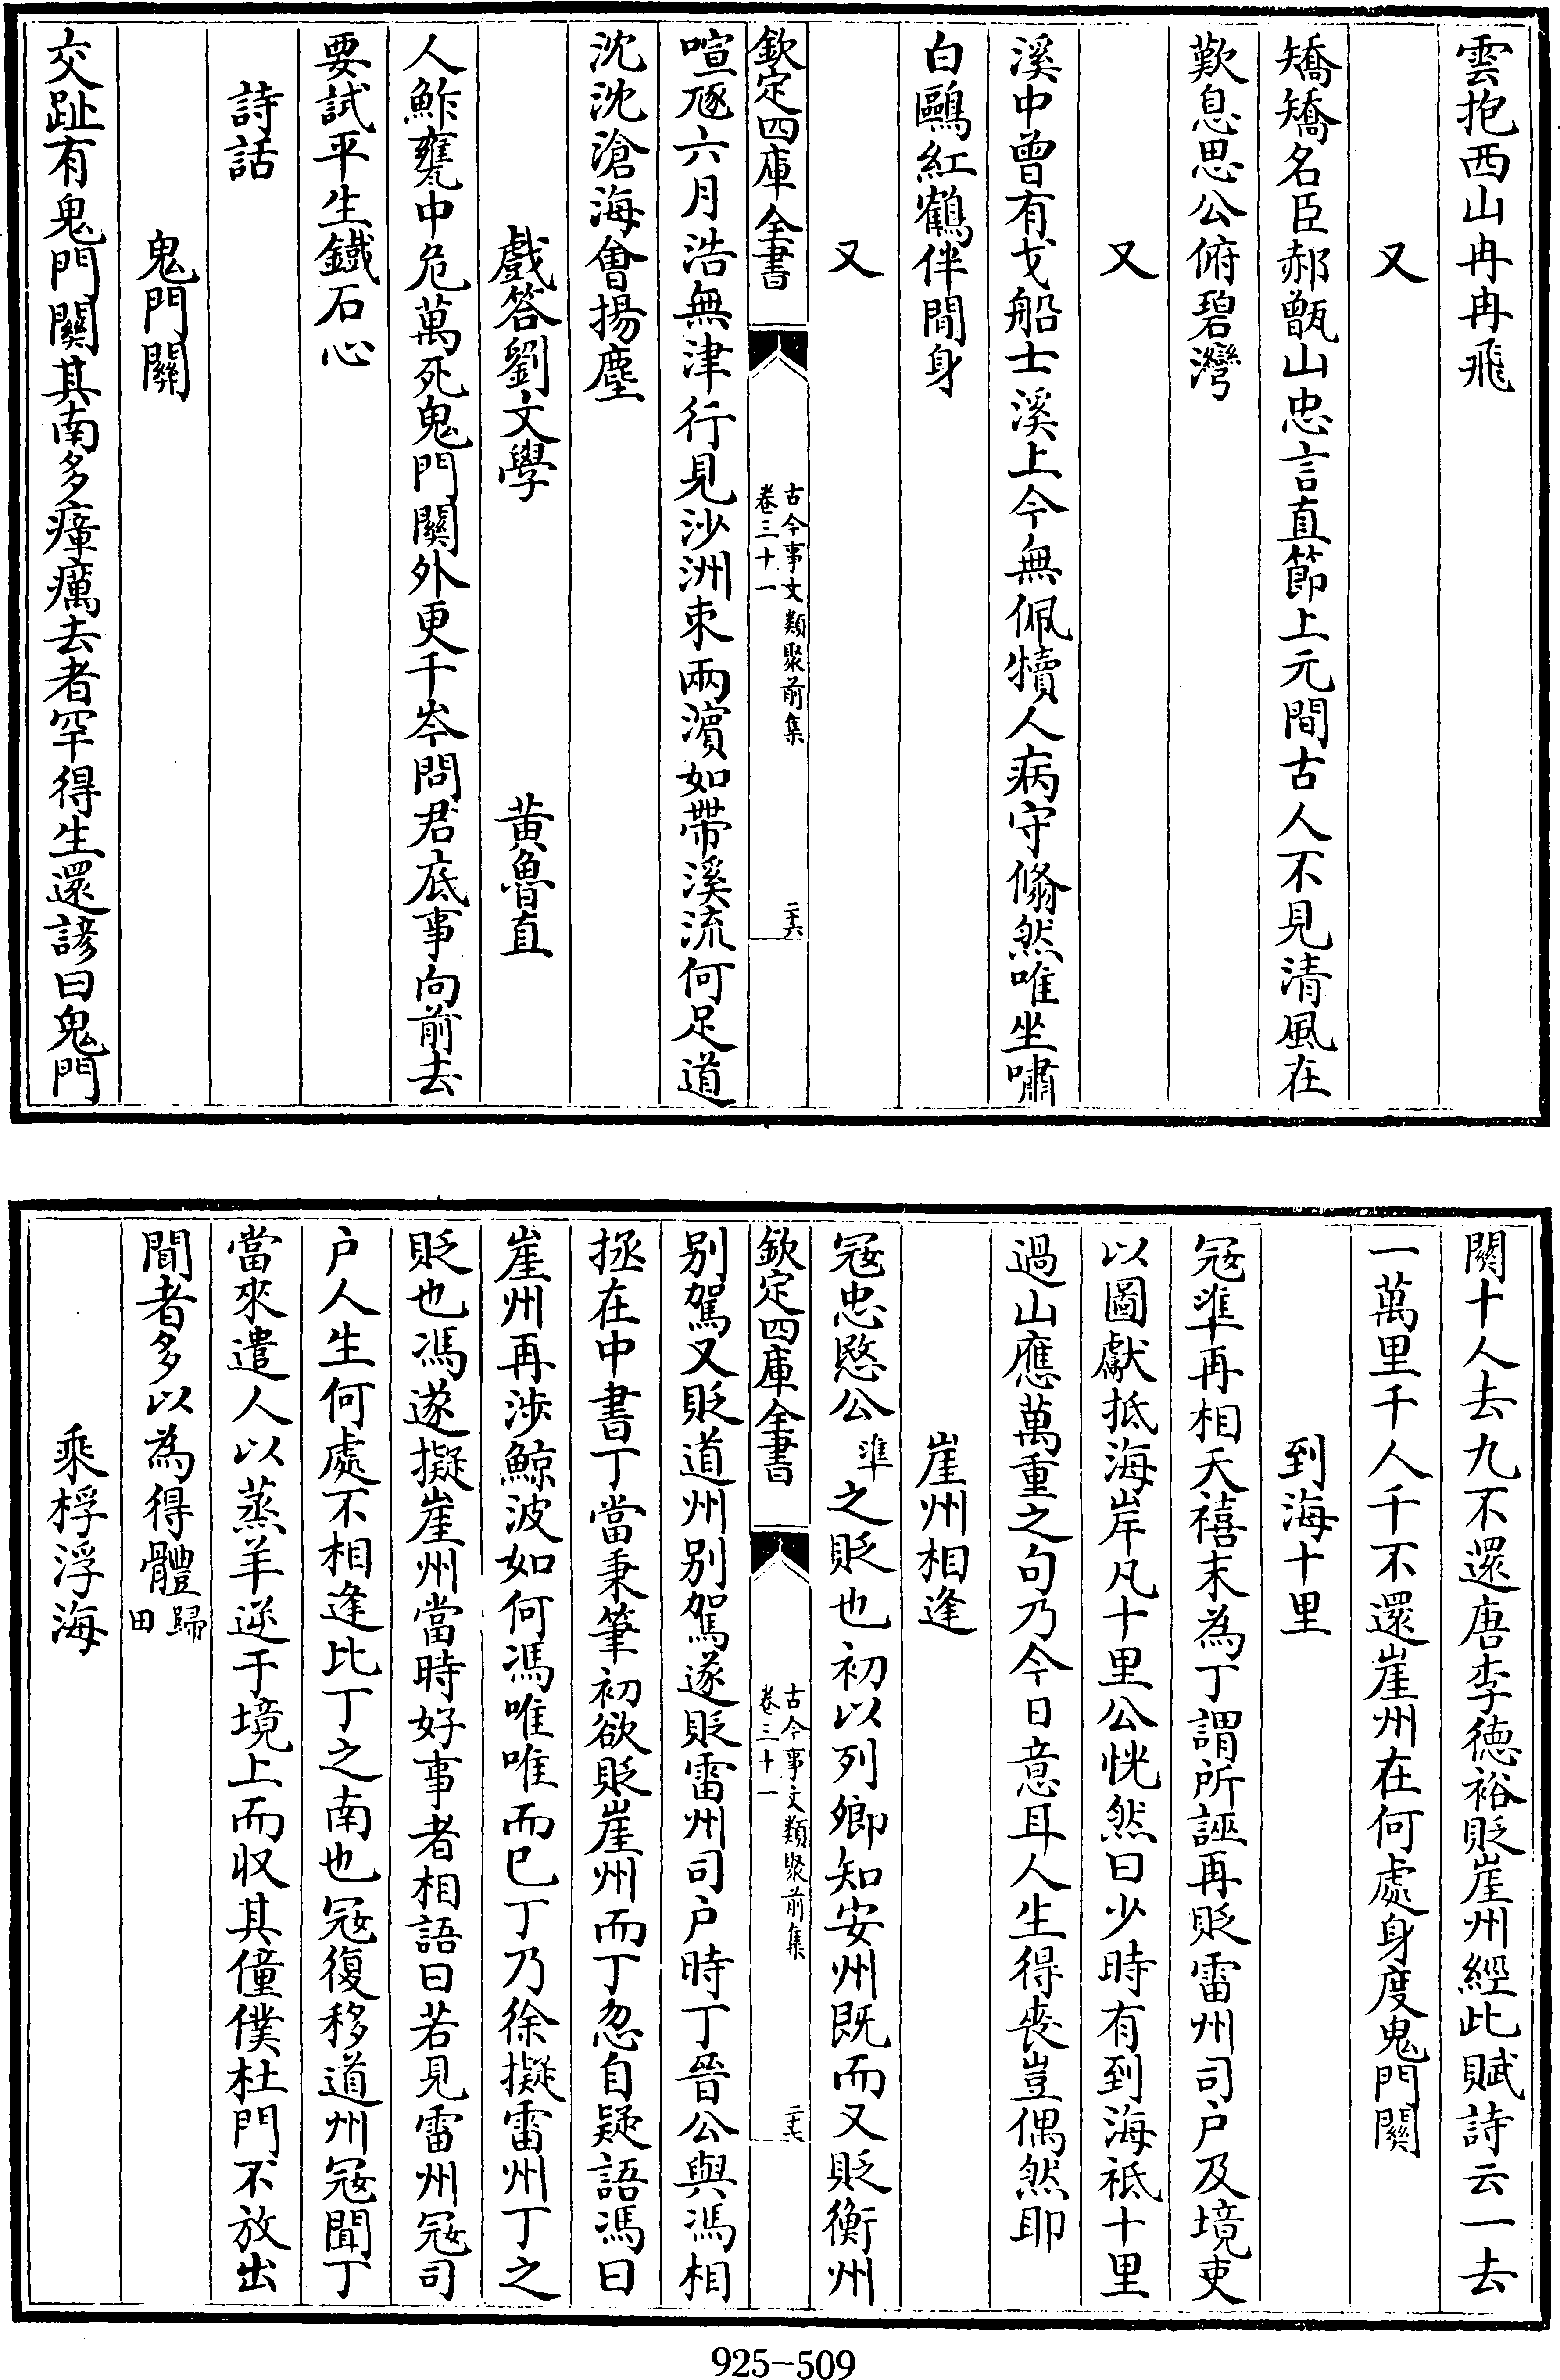 雲抱西山冉冉飛
又
矯矯名臣郝甑山忠言直節上元間古人不見清風在
歎息思公俯碧灣
又
溪中曾有戈船士溪上今無佩犢人病守翛然唯坐嘯
白鷗紅鶴伴閒身
又
欽定四庫全書
古今事文類聚前集
卷三十一
二十六
喧豗六月浩無津行見沙洲束兩濵如帶溪流何足道
沈沈滄海㑹揚塵
戲答劉文學 黄魯直
人鮓甕中危萬死鬼門關外更千岑問君底事向前去
要試平生鐵石心
詩話
鬼門關
交趾有鬼門關其南多瘴癘去者罕得生還諺曰鬼門
關十人去九不還唐李徳裕貶崖州經此賦詩云一去
一萬里千人千不還崖州在何處身度鬼門關
到海十里
冦準再相天禧末為丁謂所誣再貶雷州司户及境吏
以圖獻抵海岸凡十里公恍然曰少時有到海祗十里
過山應萬重之句乃今日意耳人生得喪豈偶然耶
崖州相逢
冦忠愍公準之貶也初以列卿知安州既而又貶衡州
欽定四庫全書
古今事文類聚前集
卷三十一
二十七
别駕又貶道州别駕遂貶雷州司户時丁晉公與馮相
拯在中書丁當秉筆初欲貶崖州而丁忽自疑語馮曰
崖州再涉鯨波如何馮唯唯而已丁乃徐擬雷州丁之
貶也馮遂擬崖州當時好事者相語曰若見雷州冦司
户人生何處不相逢比丁之南也冦復移道州冦聞丁
當來遣人以蒸羊逆于境上而収其僮僕杜門不放出
聞者多以為得體歸田
乘桴浮海
925-509